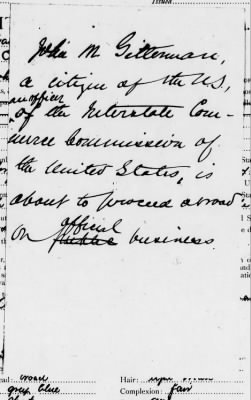 Issued
John M Gitterman,
a citizen of the U.S,
an officer
of the Interstate Com-
merce Commission of
the United States, is
about to proceed abroad
official
on public business.
broad
Hair:
grey blue
Complexion: fair